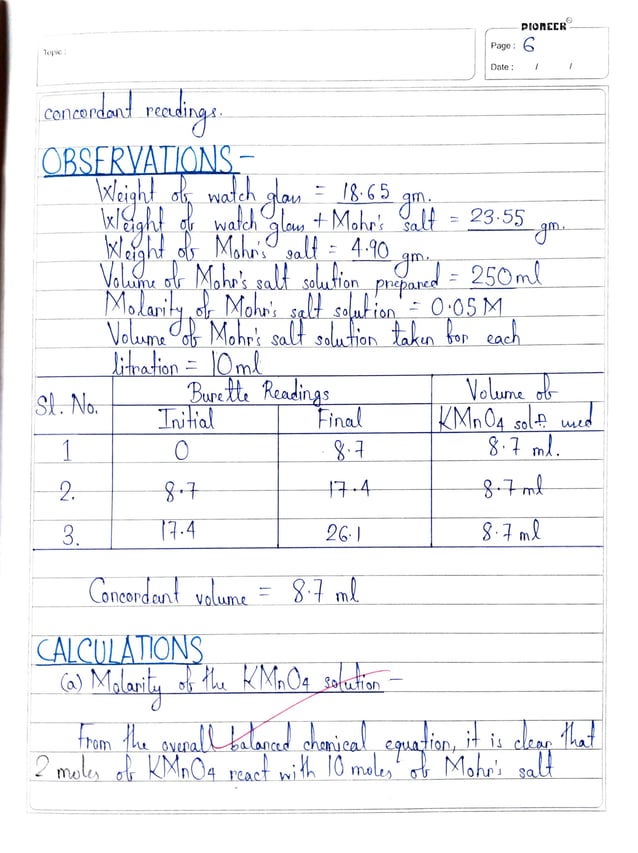 PIONEER®
Topic :
Page : 6
Date : / /
concordant readings.
OBSERVATIONS -
Weight of watch glass = 18.65 gm.
Weight of watch glass + Mohr's salt = 23.55 gm.
Weight of Mohr's salt = 4.90 gm.
Volume of Mohr's salt solution prepared = 250ml
Molarity of Mohr's salt solution = 0.05M
Volume of Mohr's salt solution taken for each
titration = 10ml
Sl. No. Burette Readings Volume of
Initial Final KMnO4 solⁿ used
1 0 8.7 8.7 ml.
2. 8.7 17.4 8.7 ml
3. 17.4 26.1 8.7 ml
Concordant volume = 8.7 ml
CALCULATIONS
(a) Molarity of the KMnO4 solution -
From the overall balanced chemical equation, it is clear that
2 moles of KMnO4 react with 10 moles of Mohr's salt